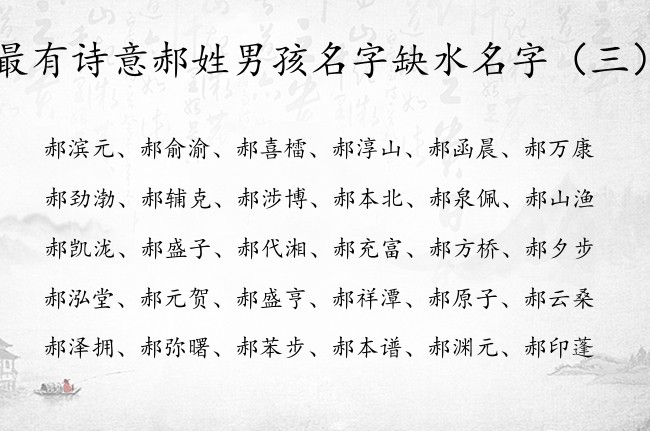 最有诗意郝姓男孩名字缺水名字（三）
郝滨元、郝俞渝、郝喜檑、郝淳山、郝函晨、郝万康
郝劲渤、郝辅克、郝涉博、郝本北、郝泉佩、郝山渔
郝凯泷、郝盛子、郝代湘、郝充富、郝方桥、郝夕步
郝泓堂、郝元贺、郝盛亨、郝祥潭、郝原子、郝云桑
郝泽拥、郝弥曙、郝苯步、郝本谱、郝渊元、郝印蓬